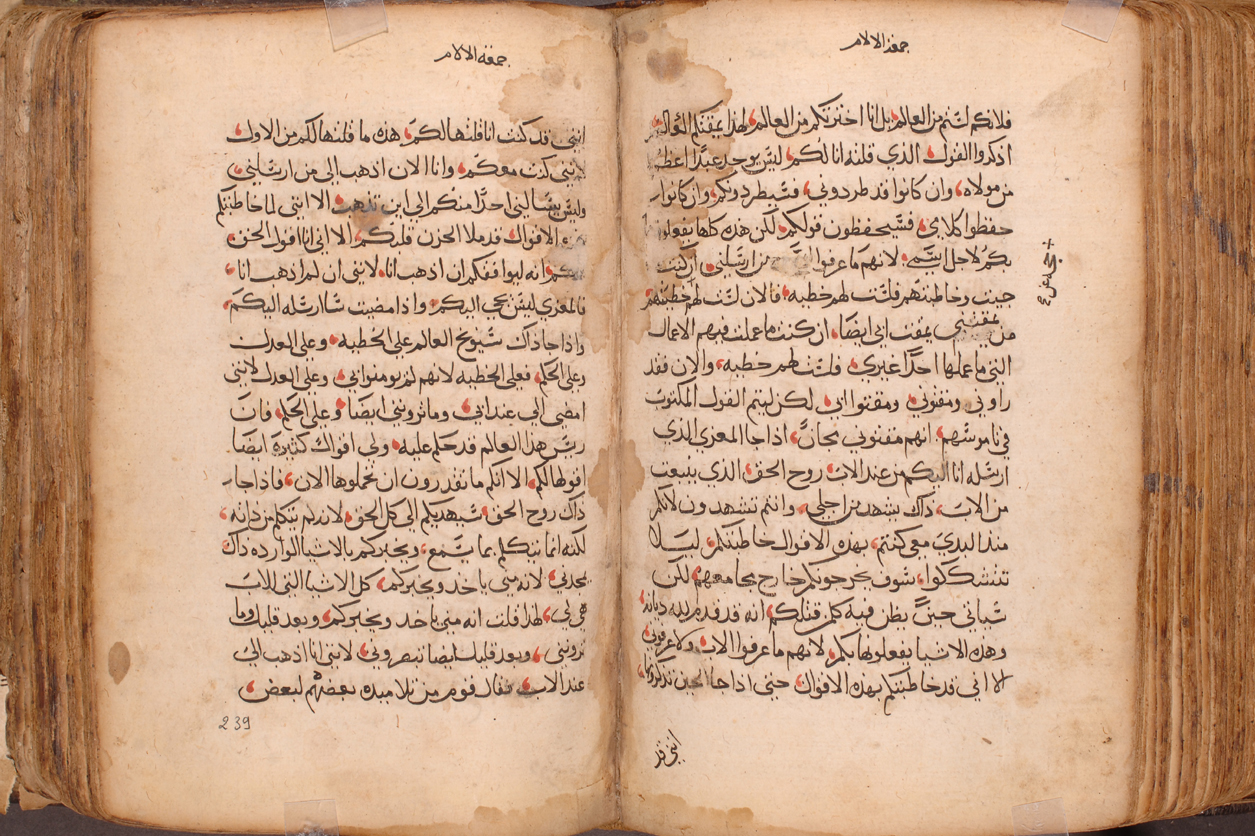 جمعة الالام
فلانكم لستم من العالم بل انا اخترتكم من العالم لهذا يمقتكم العالم
اذكروا القول الذي قلته انا لكم ليس يوجد عبدا اعظم
من مولاه وان كانوا قد طردوني فسيطردونكم وان كانوا
حفظوا كلامي فسيحفظون قولكم لكن هذه كلها يفعلونها
بكم لاجل اسمي لانهم ما عرفوا من ارسلني ان كنت
جيت وخاطبتهم فلست لهم خطيه فالان لست لهم خطيتهم
من يمقتني يمقت ابي ايضا ان كنت ما عملت فيهم الاعمال
التي ما عملها احدا غيري فلست لهم خطيه والان فقد
راوني ومقتوني ومقتوا ابي لكن ليتم القول المكتوب
في ناموسهم انهم مقتوني مجانا اذا جا المعزي الذي
ارسله انا اليكم من عند الاب روح الحق الذي ينبعث
من الاب ذاك يشهد من اجلي وانتم تشهدون لانكم
منذ البدي معي كنتم بهذه الاقوال خاطبتكم ليلا
تتشككوا سوف يخرجونكم خارج مجامعهم لكن
ستاتي حين يظن فيه كلمن قتلكم انه قد قدم لله ديانه
وهذه الاشيا يفعلونها بكم لانهم ما عرفوا الاب ولا عرفوني
الا اني قد خاطبتكم بهذه الاقوال حتى اذا جا الحين تذكروها
انني قد
جمعة الالام
انني قد كنت انا قلتها لكم هذه ما قلتها لكم من الاول
لانني كنت معكم وانا الان اذهب الى من ارسلني
وليس يسالني احدا منكم الى اين تذهب الا انني لما خاطبتكم
الاقوال قد ملا الحزن قلبكم الا اني انا اقول الحق
لكم انه ليوافقكم ان اذهب انا لانني ان لم اذهب انا
فالمعزي ليس يجي اليكم واذا مضيت سارسله اليكم
واذا جا ذاك سيوبخ العالم على الخطيه وعلى العدل
وعلى الحكم فعلى الخطيه لانهم لم يومنوا بي وعلى العدل لانني
امضي الى عند ابي وما ترونني ايضا وعلى الحكم فان
ريس هذا العالم قد حكم عليه ولي اقوال كثيرة ايضا
اقولها لكم الا انكم ما تقدرون ان تحملوها الان فاذا جا
ذاك روح الحق سيهديكم الى كل الحق لانه لم يتكلم من ذاته
لكنه انما يتكلم بما يسمع ويخبركم بالاشيا الوارده ذاك
يمجدني لانه مني ياخذ ويخبركم كل الاشيا التي للاب
هي لي لهذا قلت انه مني ياخذ ويخبركم وبعد قليل وما
تروني وبعد قليل ايضا تبصروني لانني انا اذهب الى
عند الاب فقال قوم من تلاميذه بعضهم لبعض
239